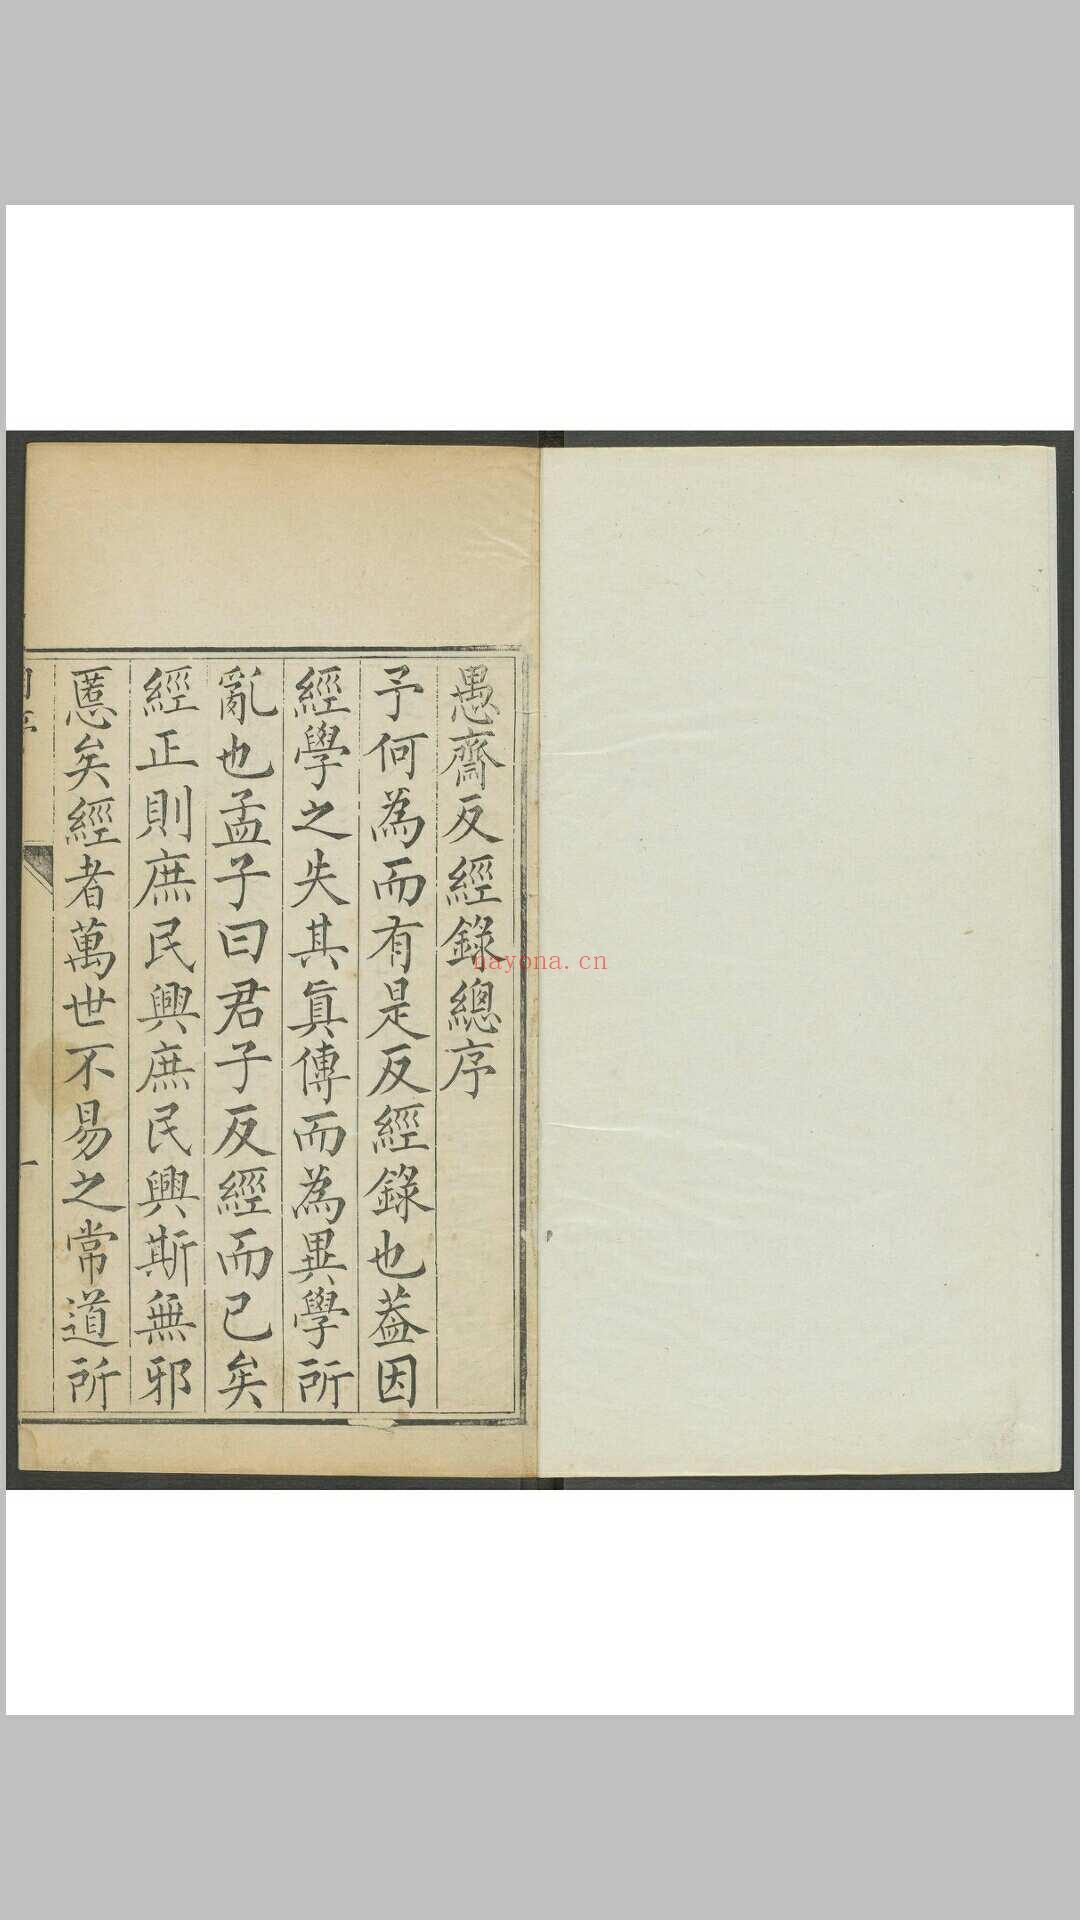 愚齋反經錄總序
予何為而有是反經錄也葢因
經學之失其眞傳而為異學所
亂也孟子曰君子反經而已矣
經正則庶民興庶民興斯無邪
慝矣經者萬世不易之常道所
一
nayona.cn